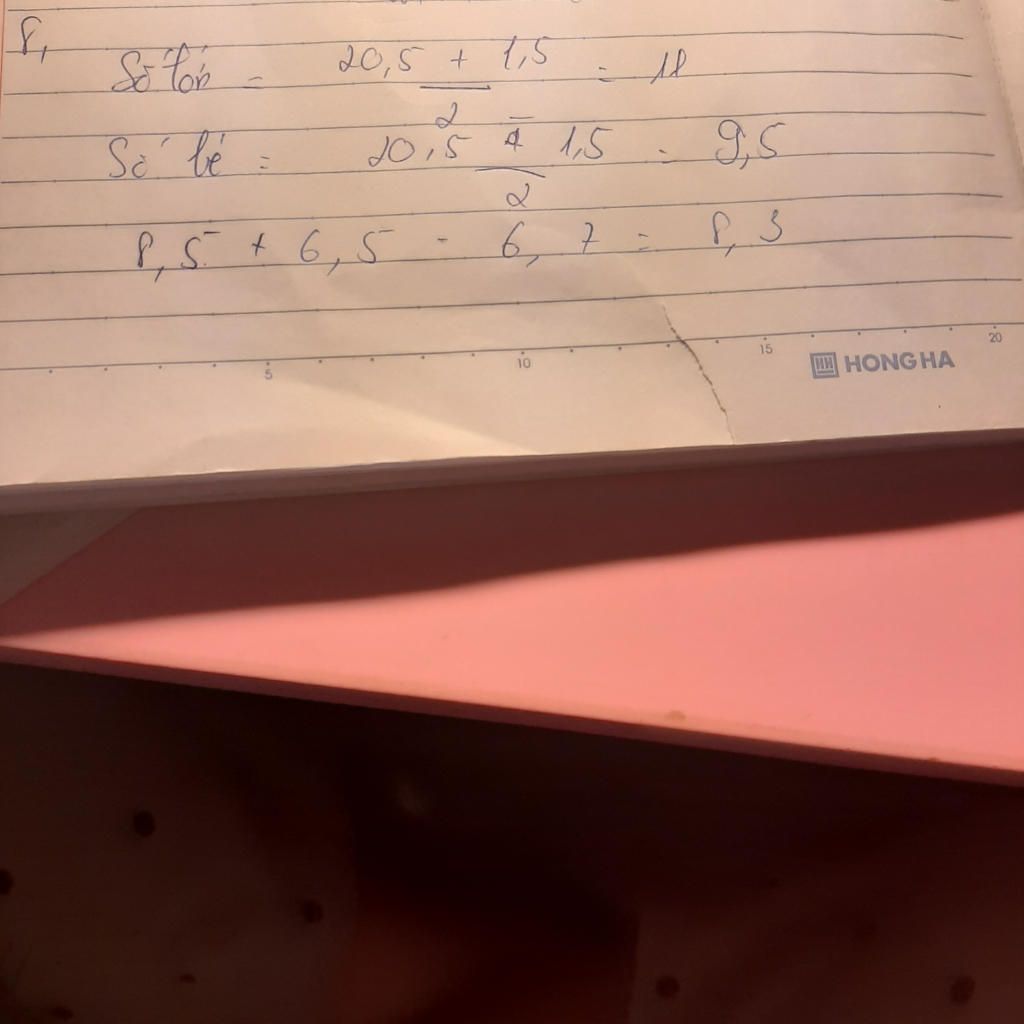 8,
Số lớn = 20,5 + 1,5 / 2 = 11
Số bé = 20,5 - 1,5 / 2 = 9,5
8,5 + 6,5 - 6,7 = 8,3
5 10 15 20
HH HONG HA